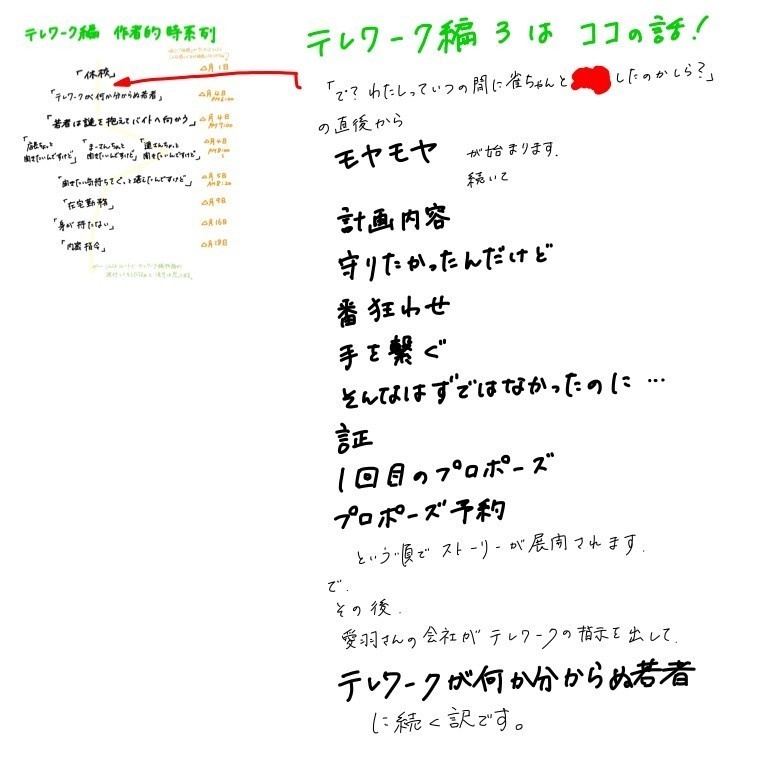 テレワーク編 作者的 時系列
「休校」 △月1日
「テレワークが何か分からぬ若者」 △月4日
AM6:00
「若者は謎を抱えてバイトへ向かう」 △月4日
AM7:00
「店長ちょっと 「まーさんちょっと 「遥さんちょっと △月4日
聞きたいんですけど」 聞きたいんですけど」 聞きたいんですけど」 AM8:00
△月5日
AM8:20
「在宅勤務」 △月9日
「身が持たない」 △月16日
「内密指令」 △月18日
テレワーク編 3は ココの話!
「で?わたしっていつの間に雀ちゃんと したのかしら?」
の直後から
モヤモヤ が始まります.
続いて
計画内容
守りたかったんだけど
番狂わせ
手を繋ぐ
そんなはずではなかったのに…
証
1回目のプロポーズ
プロポーズ予約
という順でストーリーが展開されます.
で.
その後.
愛羽さんの会社がテレワークの指示を出して.
テレワークが何か分からぬ若者
に続く訳です。